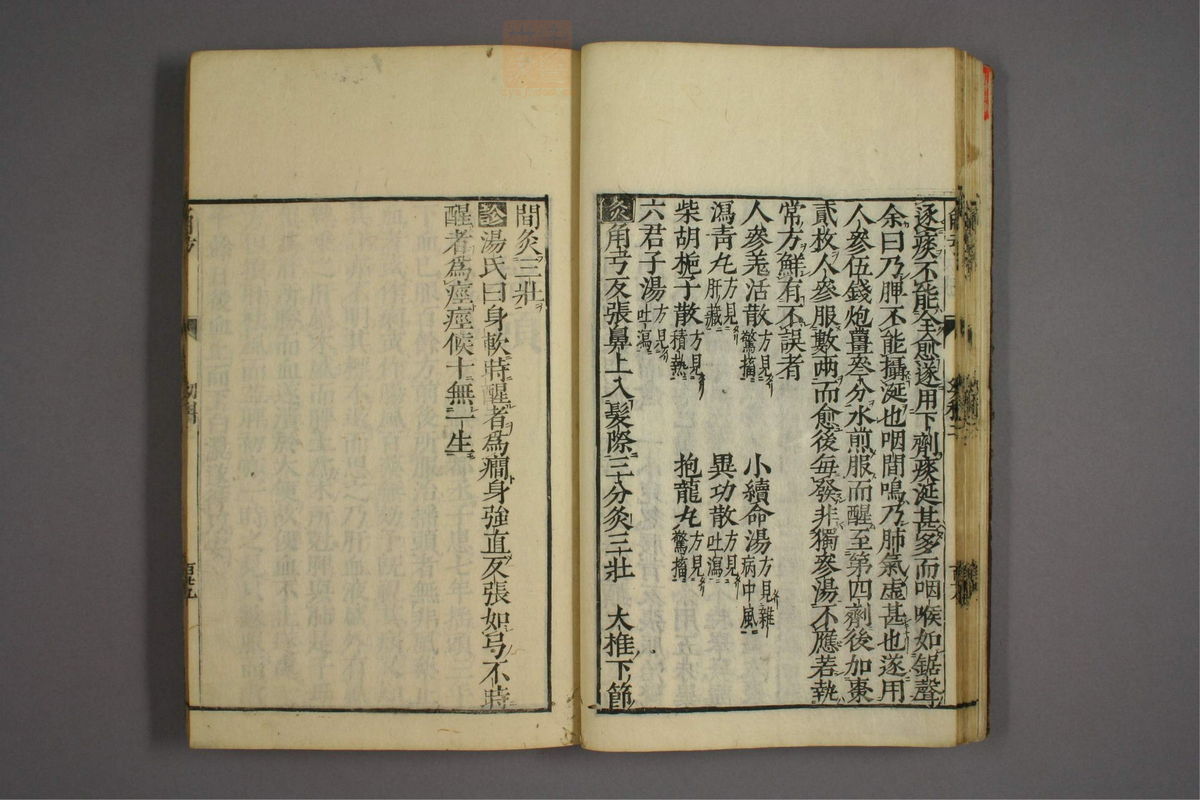 逐痰不能全愈遂用下劑痰涎甚多而咽喉如鋸聲
余曰乃脾不能攝涎也咽間鳴乃肺氣虛甚也遂用
人參伍錢炮薑叄分水煎服而醒至第四劑後加棗
貳枚人參服數兩而愈後每發非獨參湯不應若執
常方鮮有不誤者
人參羗活散方見驚搐 小續命湯方見雜病中風
瀉青丸方見肝藏 異功散方見吐瀉
柴胡梔子散方見積熱 抱龍丸方見驚搐
六君子湯方見吐瀉
灸角弓反張鼻上入髮際三分灸三壯 大椎下節
間灸三壯
診湯氏曰身軟時醒者為癇身強直反張如弓不時
醒者為痙痙候十無一生